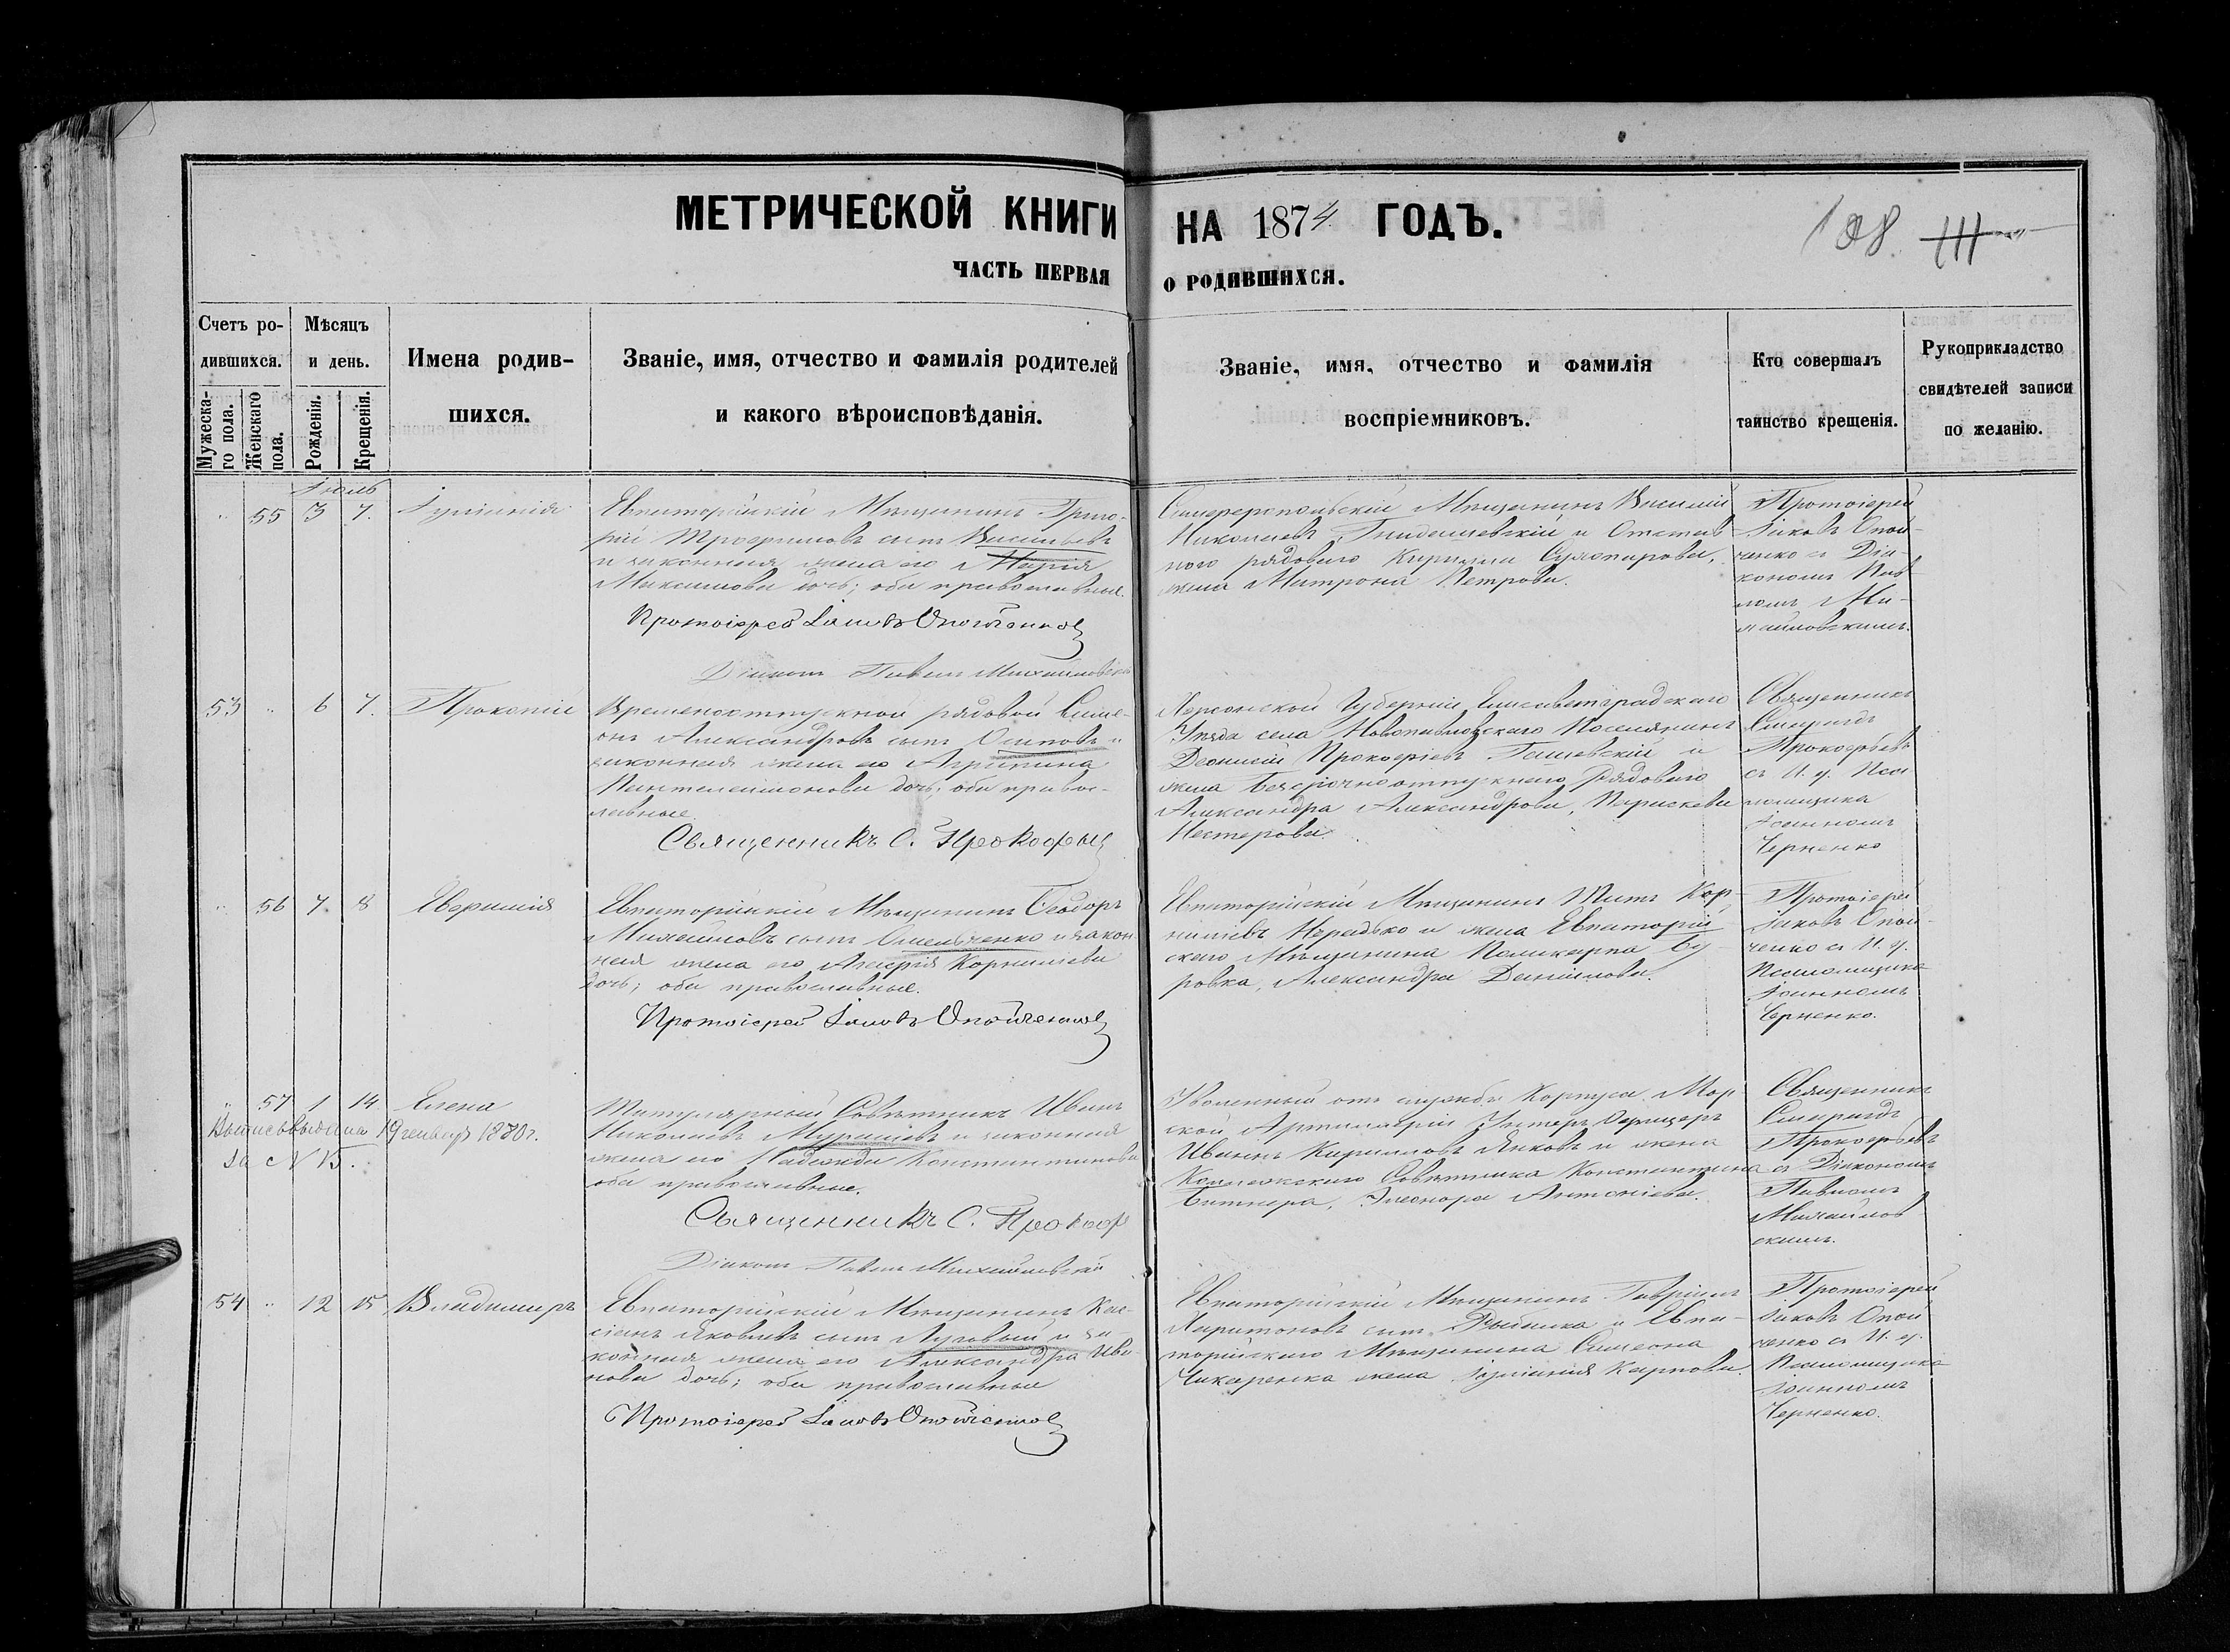 МЕТРИЧЕСКОЙ КНИГИ НА 1874 ГОДЪ.
108.
ЧАСТЬ ПЕРВАЯ О РОДИВШИХСЯ.
Счетъ родившихся.
Мужескаго пола.
Женскаго пола.
Мѣсяцъ и день.
Рожденія.
Крещенія.
Имена родившихся.
Званіе, имя, отчество и фамилія родителей
и какого вѣроисповѣданія.
Званіе, имя, отчество и фамилія
воспріемниковъ.
Кто совершалъ
таинство крещенія.
Рукоприкладство
свидѣтелей записи
по желанію.
Іюль
" 55 3 7. Іуліанія
Евпаторійскій Мѣщанинъ Григо-
рій Трофимовъ сынъ Васильевъ
и законная жена его Марія
Максимова дочь; оба православные.
Протоіерей Іаковъ Опойченко
Діаконъ Павелъ Михайловскій
Симферопольскій Мѣщанинъ Василій
Николаевъ и Отстав-
ного рядового Кирилла
жена Матрона Петрова.
Протоіерей
Іаковъ Опой-
ченко съ Діа-
кономъ Пав
ломъ Ми-
хайловскимъ.
53 " 6 7. Прокопій
Временноотпускной рядовой Симе-
онъ Александровъ сынъ Осиповъ и
законная жена его Агрипина
Пантелеимонова дочь; оба право-
славные.
Священникъ С. Прокофьев
Херсонской Губерніи Елисаветградскаго
Уѣзда села Новопавловскаго Поселянинъ
Деонисій Прокофіевъ и
жена безсрочноотпускного рядового
Александра Александрова, Параскева
Нестерова.
Священникъ
Спиридъ
Прокофьевъ
съ И. д. Пса
ломщика
Іоанномъ
Черненко
" 56 7. 8 Евфимія
Евпаторійскій Мѣщанинъ Ѳеодоръ
Михайловъ сынъ Омельченко и закон
ная жена его Корнилієва
дочь; оба православные.
Протоіерей Іаковъ Опойченко
Евпаторійскій Мѣщанинъ Титъ Кор-
ниліевъ Нередько и жена Евпаторій
скаго Мѣщанина Поликарпа Бу-
ровка, Александра Даніилова.
Протоіерей
Іаковъ Опой-
ченко съ И. д.
Псаломщика
Іоанномъ
Черненко.
" 57 1 14 Елена
Выпись выдана 19 генваря 1880 г.
за № 15.
Титулярный Совѣтникъ Иванъ
Николаевъ Мурашевъ и законная
жена его Надежда Константинова
оба православные.
Священникъ С. Прокоф
Діаконъ Павелъ Михайловскій
Уволенный отъ службы Корпуса Мор
ской Артиллеріи Унтеръ Офицеръ
Иванъ Кирилловъ Яковъ и жена
Коллежскаго Совѣтника Константина
Битнера, Элеонора Антоніева.
Священникъ
Спиридъ
Прокофьевъ
съ Діакономъ
Павломъ
Михайлов
скимъ.
54 " 12 15 Владимиръ
Евпаторійскій Мѣщанинъ Кас-
сіанъ Яковлевъ сынъ Луговый и за-
конная жена его Александра Ива-
нова дочь; оба православные
Протоіерей Іаковъ Опойченко
Евпаторійскій Мѣщанинъ Гавріилъ
Харитоновъ сынъ Рыбалка и Евпа-
торійскаго Мѣщанина Симеона
Чикаренка жена Іуліанія Карпова.
Протоіерей
Іаковъ Опой
ченко съ И. д.
Псаломщика
Іоанномъ
Черненко.